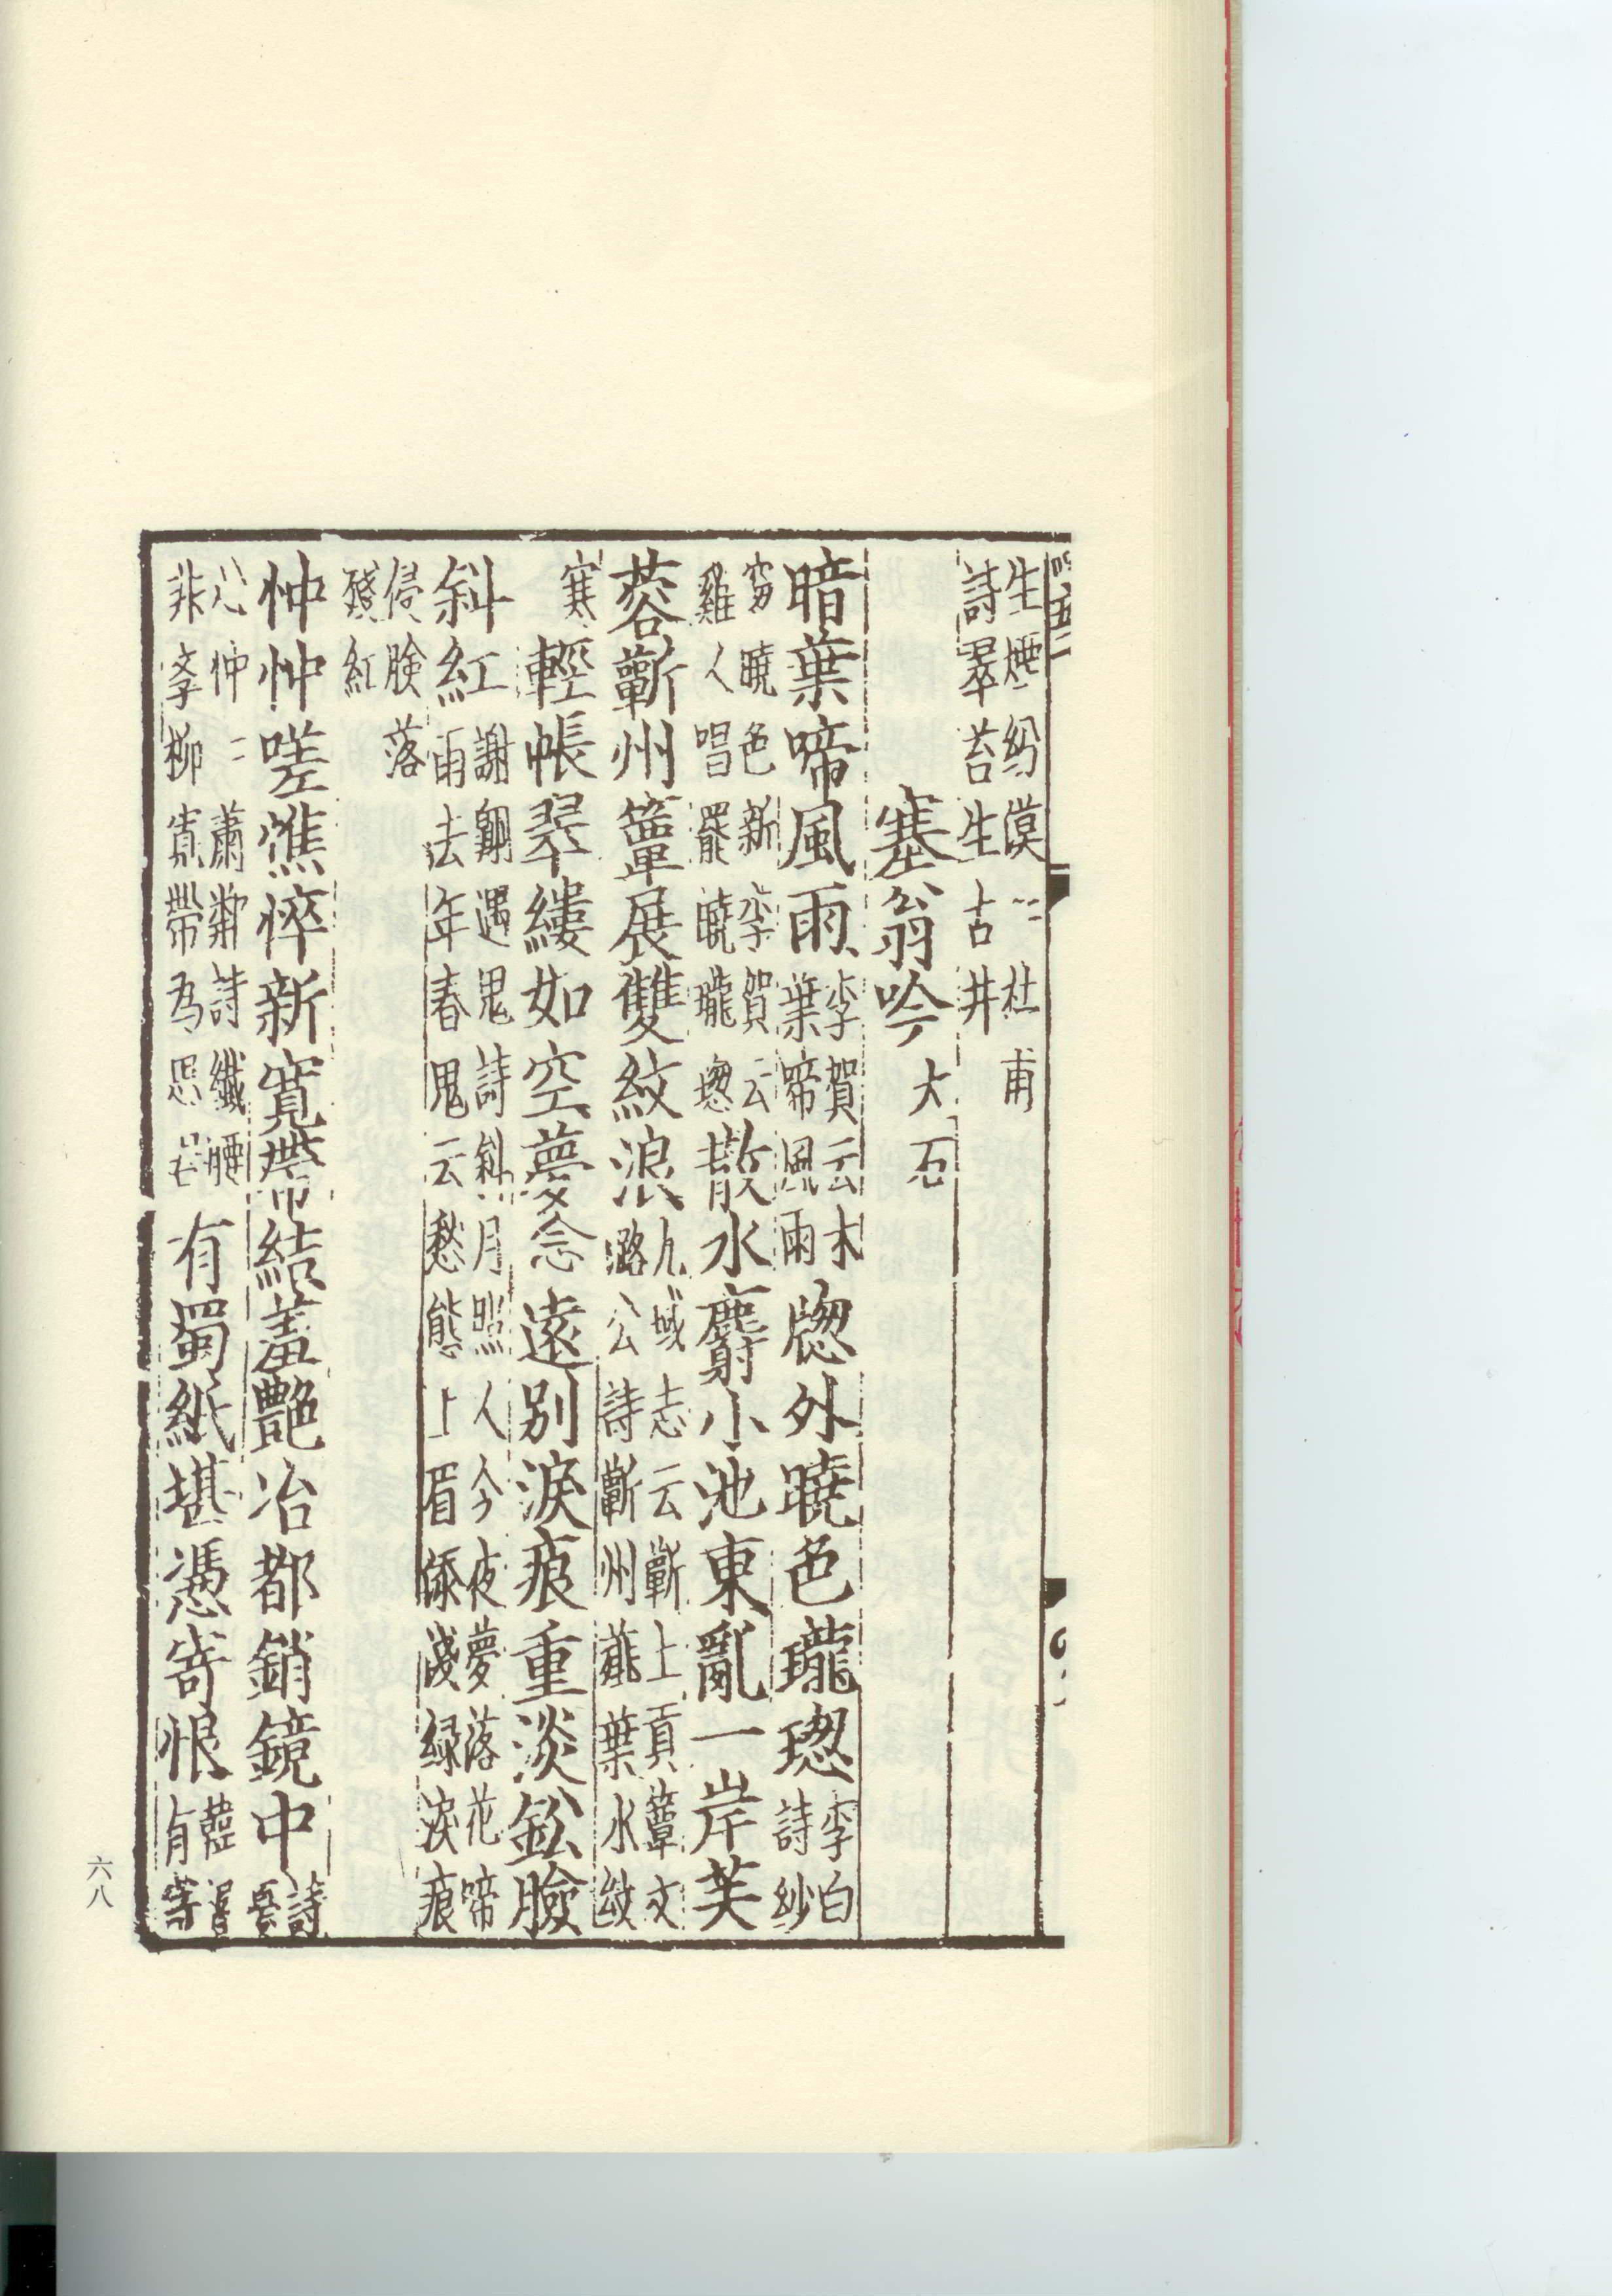 生煙紛漠〻杜甫
詩翠苔生古井
塞翁吟大石
暗葉啼風雨
李賀云木
葉啼風雨
牕外曉色瓏璁
李白
詩紗
窓曉色新李賀云
雞人唱罷曉瓏璁
散水麝小池東亂一岸芙
蓉蘄州簟展雙紋浪
九域志云蘄上貢簟文
潞公詩蘄州蘄葉水紋
寒
輕帳翠縷如空夢念遠別淚痕重淡鈆臉
斜紅
謝翱遇鬼詩斜月照人今夜夢落花啼
雨去年春鬼云愁態上眉添淺綠淚痕
侵臉落
殘紅
忡忡嗟憔悴新寬帶結羞艷冶都銷鏡中
詩
憂
心忡〻蕭
詩纖腰
非學柳寬帶為思
有蜀紙堪憑寄恨
有
六八